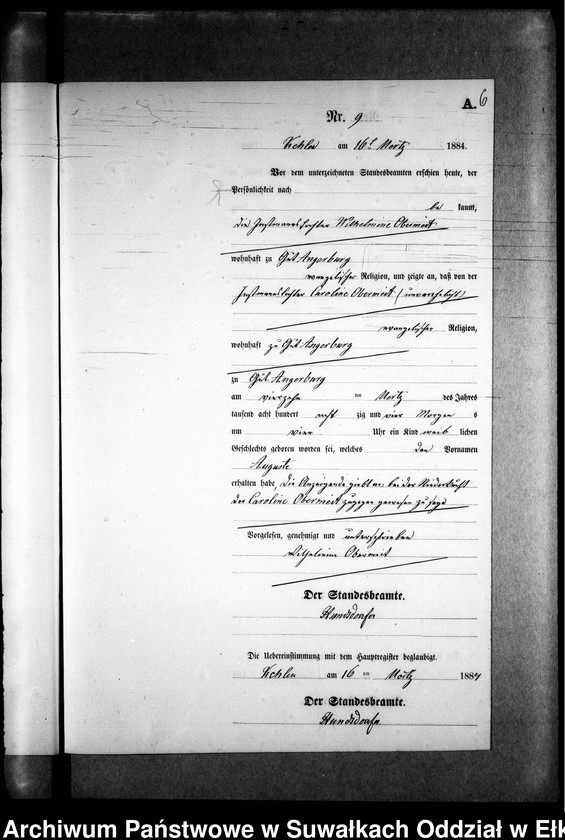 A. 6
Nr. 9
am 16t März 1884.
Vor dem unterzeichneten Standesbeamten erschien heute, der
Persönlichkeit nach
be kannt,
die Instmannstochter Wilhelmine Obermeit
wohnhaft zu Gut Angerburg
evangelischer Religion, und zeigte an, daß von der
Instmannstochter Caroline Obermeit (unverehelicht)
evangelischer Religion,
wohnhaft zu Gut Angerburg
zu Gut Angerburg
am vierzehn ten März des Jahres
tausend acht hundert acht zig und vier Morgen s
um vier Uhr ein Kind weib lichen
Geschlechts geboren worden sei, welches den Vornamen
Auguste
erhalten habe, die Anzeigende giebt an bei der Niederkunft
der Caroline Obermeit zugegen gewesen zu sein
Vorgelesen, genehmigt und unterschrieben
Wilhelmine Obermeit
Der Standesbeamte.
Die Uebereinstimmung mit dem Hauptregister beglaubigt.
am 16 ten März 1884
Der Standesbeamte.
Archiwum Państwowe w Suwałkach Oddział w Ełk